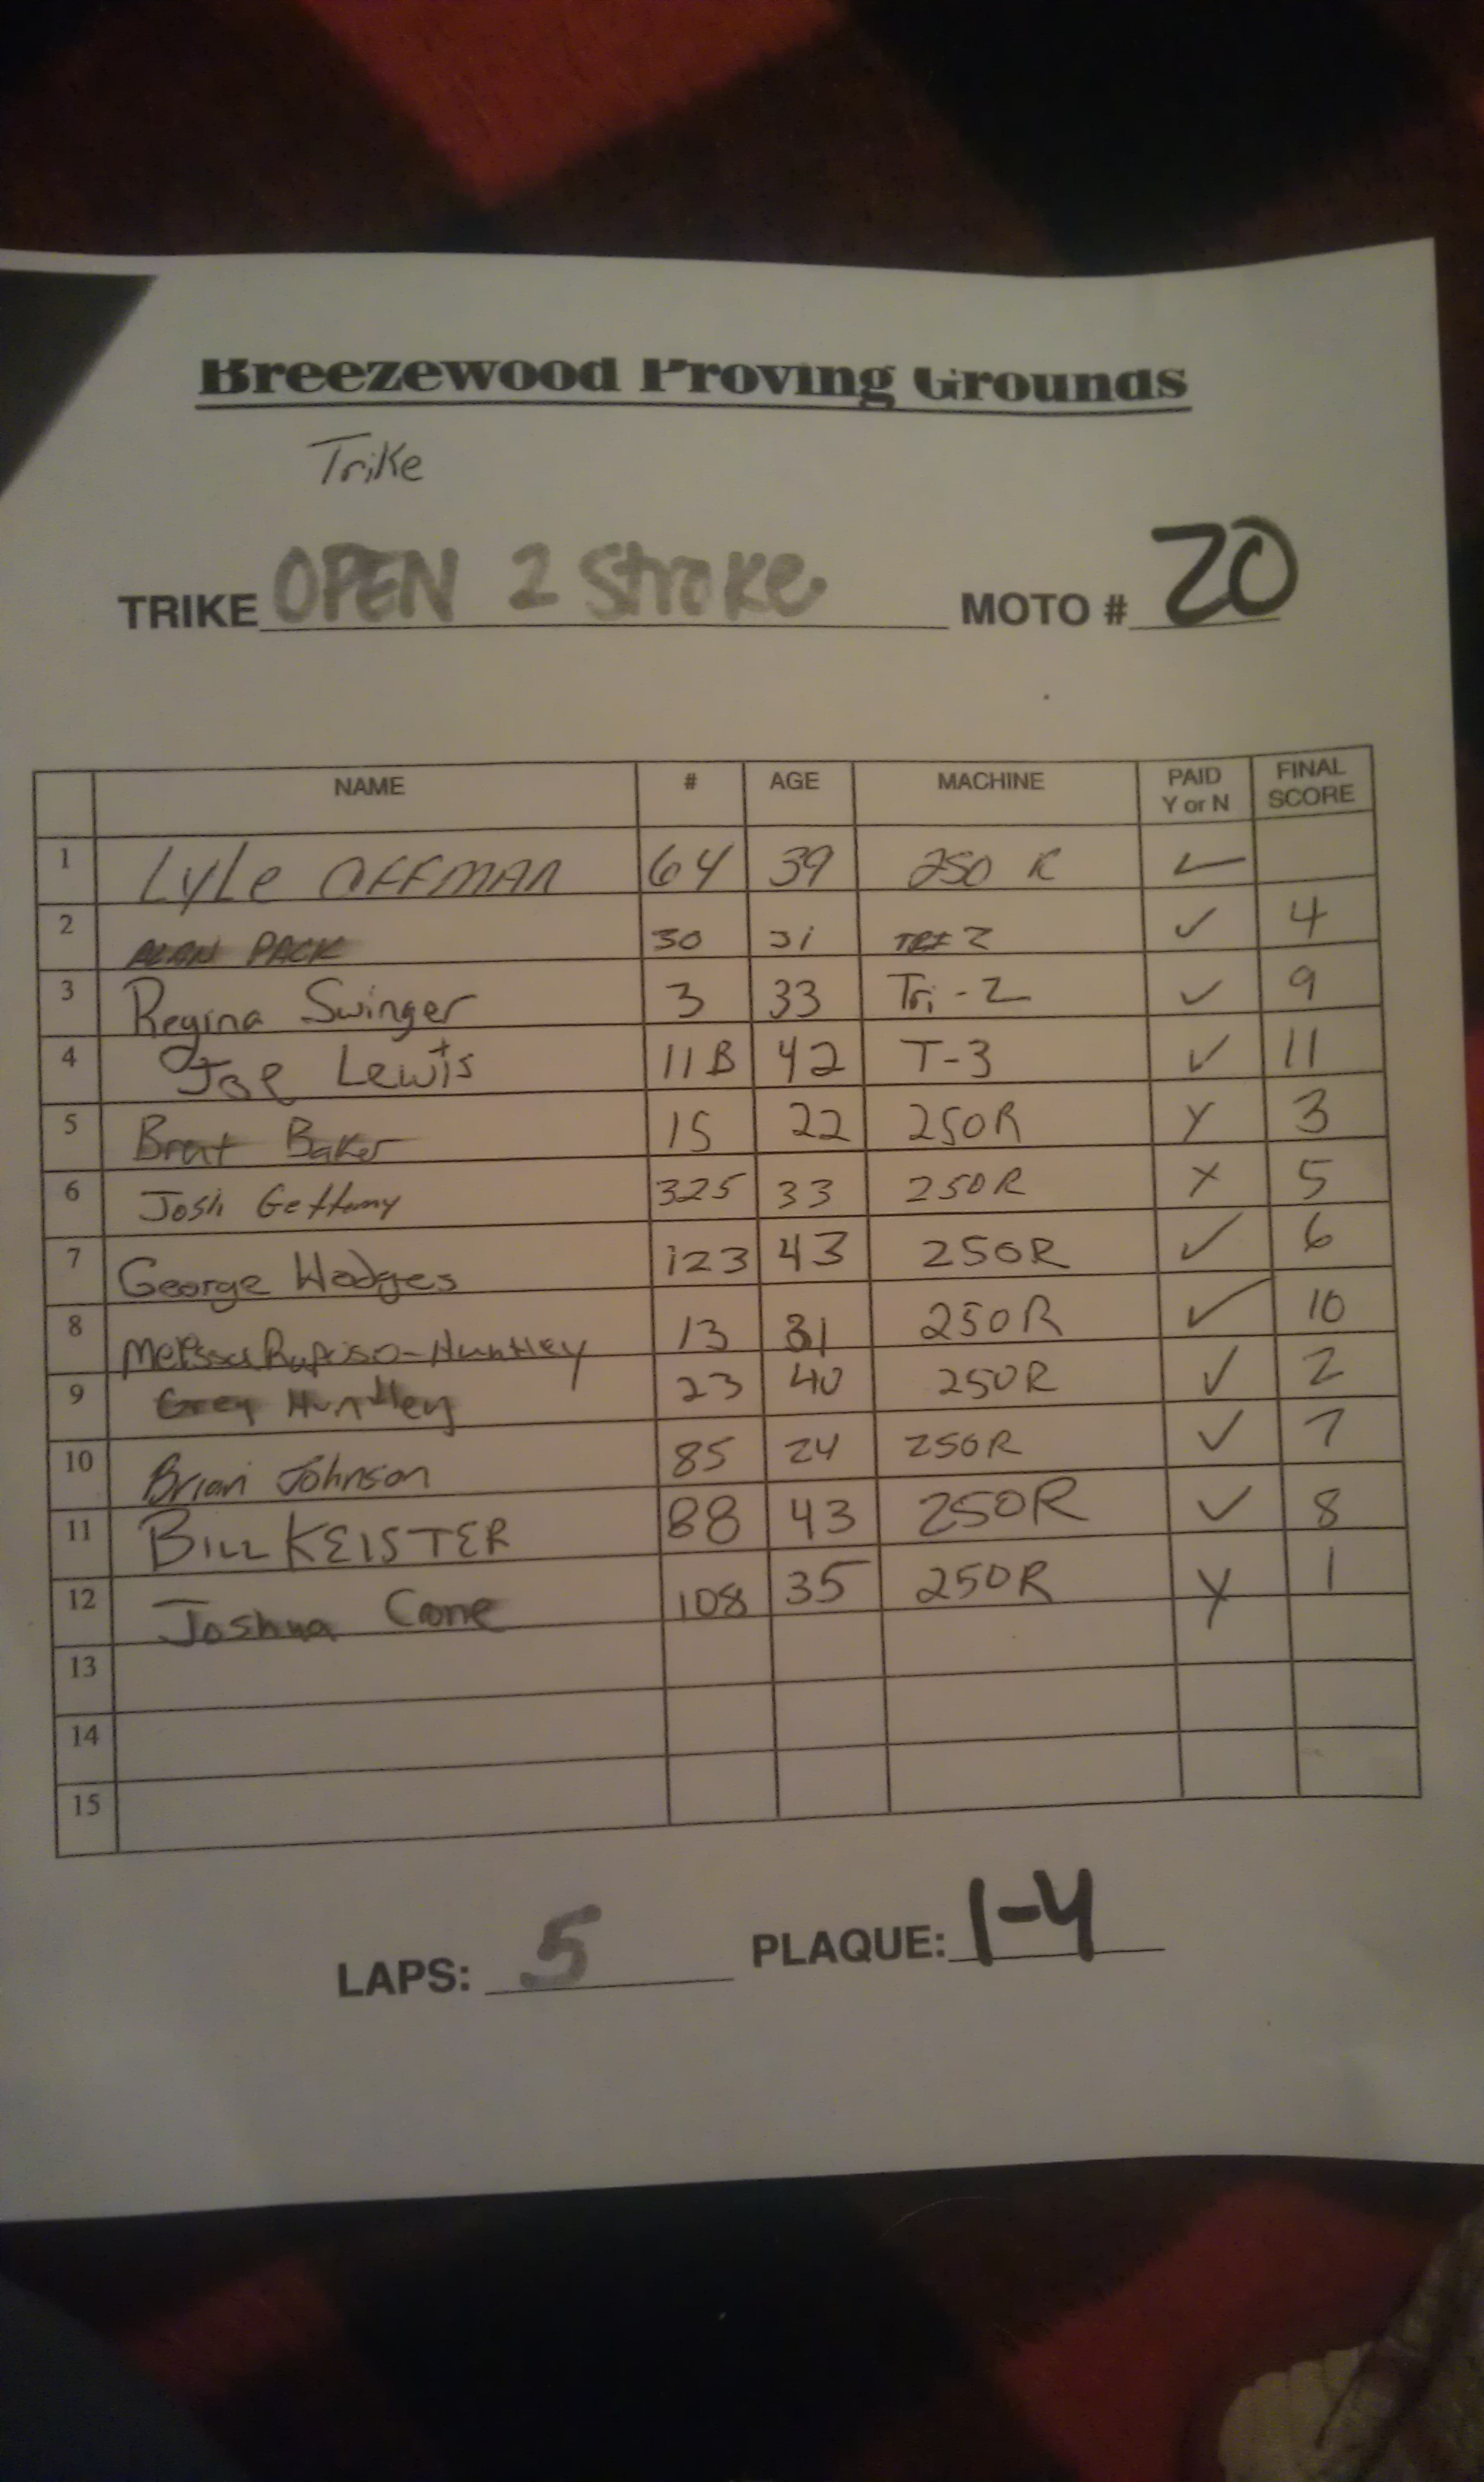 Breezewood Proving Grounds
Trike
TRIKE OPEN 2 Stroke MOTO # 20
NAME # AGE MACHINE PAID Y or N FINAL SCORE
1 Lyle OFFMAN 64 39 250 R ✓
2 ALAN PACK 30 31 TRI Z ✓ 4
3 Regina Swinger 3 33 Tri-Z ✓ 9
4 Joe Lewis 11B 42 T-3 ✓ 11
5 Brent Baker 15 22 250R Y 3
6 Josh Gettemy 325 33 250R Y 5
7 George Hodges 123 43 250R ✓ 6
8 Melissa Huntley 13 31 250R ✓ 10
9 Greg Huntley 23 40 250R ✓ 2
10 Brian Johnson 85 24 250R ✓ 7
11 BILL KEISTER 88 43 250R ✓ 8
12 Joshua Crone 108 35 250R Y 1
13
14
15
LAPS: 5 PLAQUE: 1-4